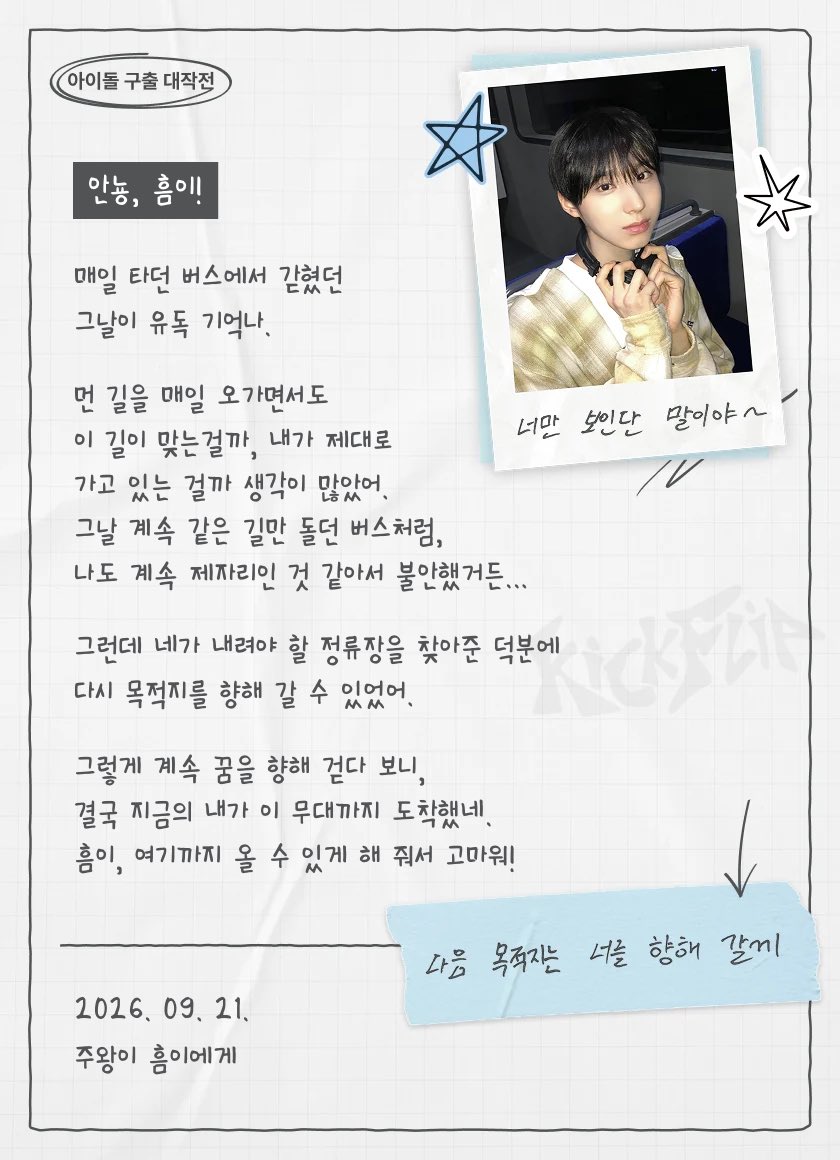 아이돌 구출 대작전
안뇽, 흠이!
매일 타던 버스에서 갇혔던
그날이 유독 기억나.
먼 길을 매일 오가면서도
이 길이 맞는걸까, 내가 제대로
가고 있는 걸까 생각이 많았어.
그날 계속 같은 길만 돌던 버스처럼,
나도 계속 제자리인 것 같아서 불안했거든...
그런데 네가 내려야 할 정류장을 찾아준 덕분에
다시 목적지를 향해 갈 수 있었어.
그렇게 계속 꿈을 향해 걷다 보니,
결국 지금의 내가 이 무대까지 도착했네.
흠이, 여기까지 올 수 있게 해 줘서 고마워!
너만 보인단 말이야~
KickFlip
다음 목적지는 너를 향해 갈게
2026. 09. 21.
주왕이 흠이에게